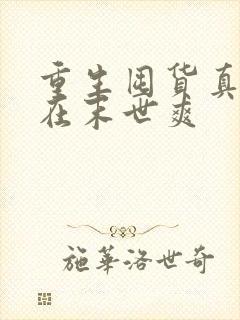 重生囤货真
在末世爽
施华洛世奇